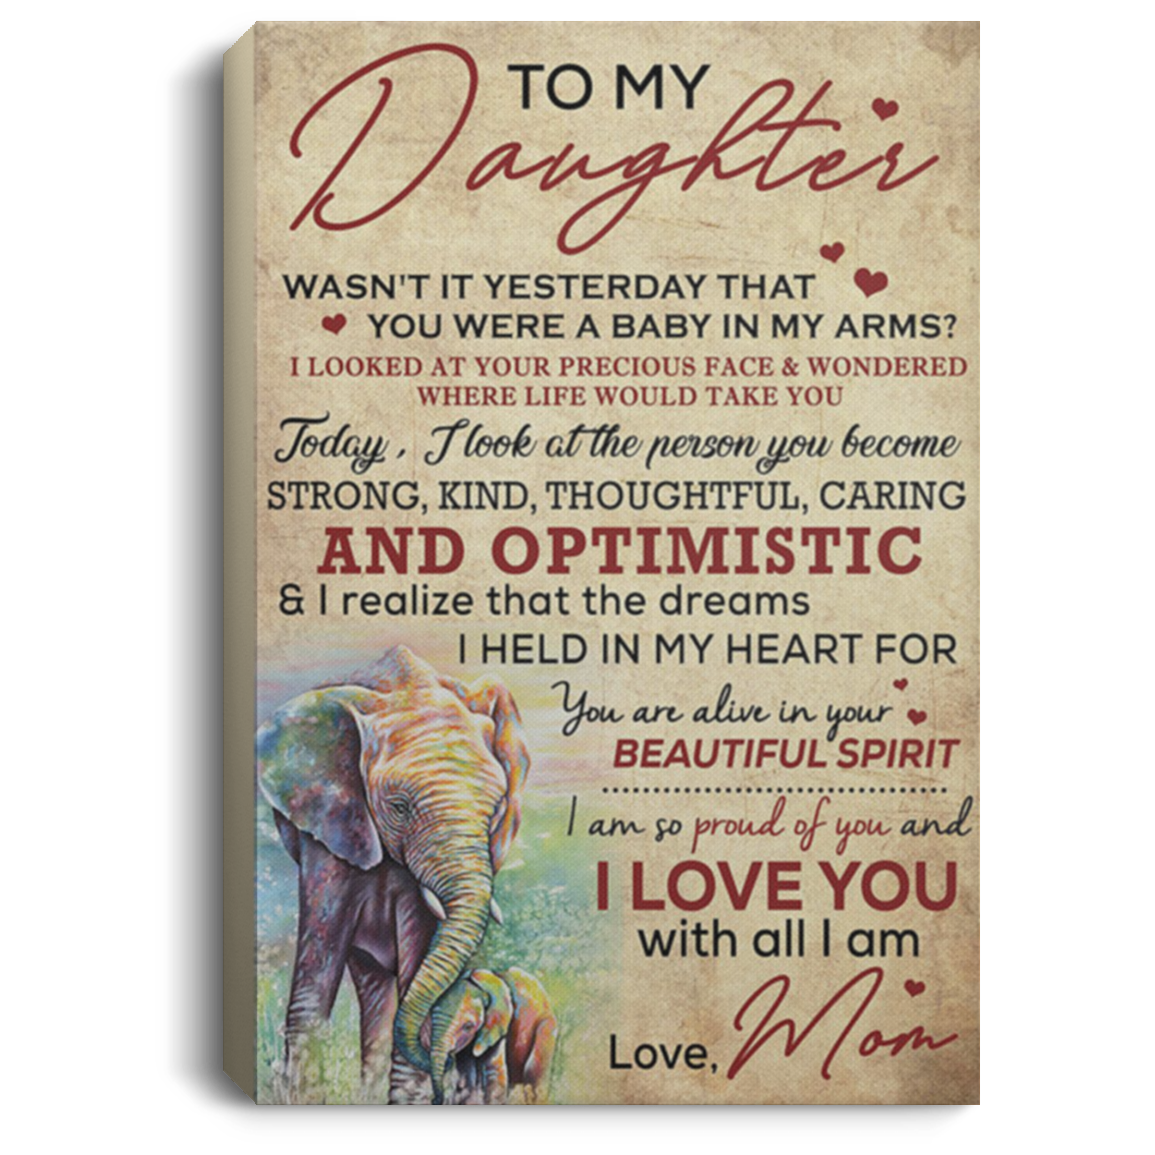 TO MY
Daughter
WASN'T IT YESTERDAY THAT
YOU WERE A BABY IN MY ARMS?
I LOOKED AT YOUR PRECIOUS FACE & WONDERED
WHERE LIFE WOULD TAKE YOU
Today, I look at the person you become
STRONG, KIND, THOUGHTFUL, CARING
AND OPTIMISTIC
& I realize that the dreams
I HELD IN MY HEART FOR
You are alive in your
BEAUTIFUL SPIRIT
I am so proud of you and
I LOVE YOU
with all I am
Love, Mom